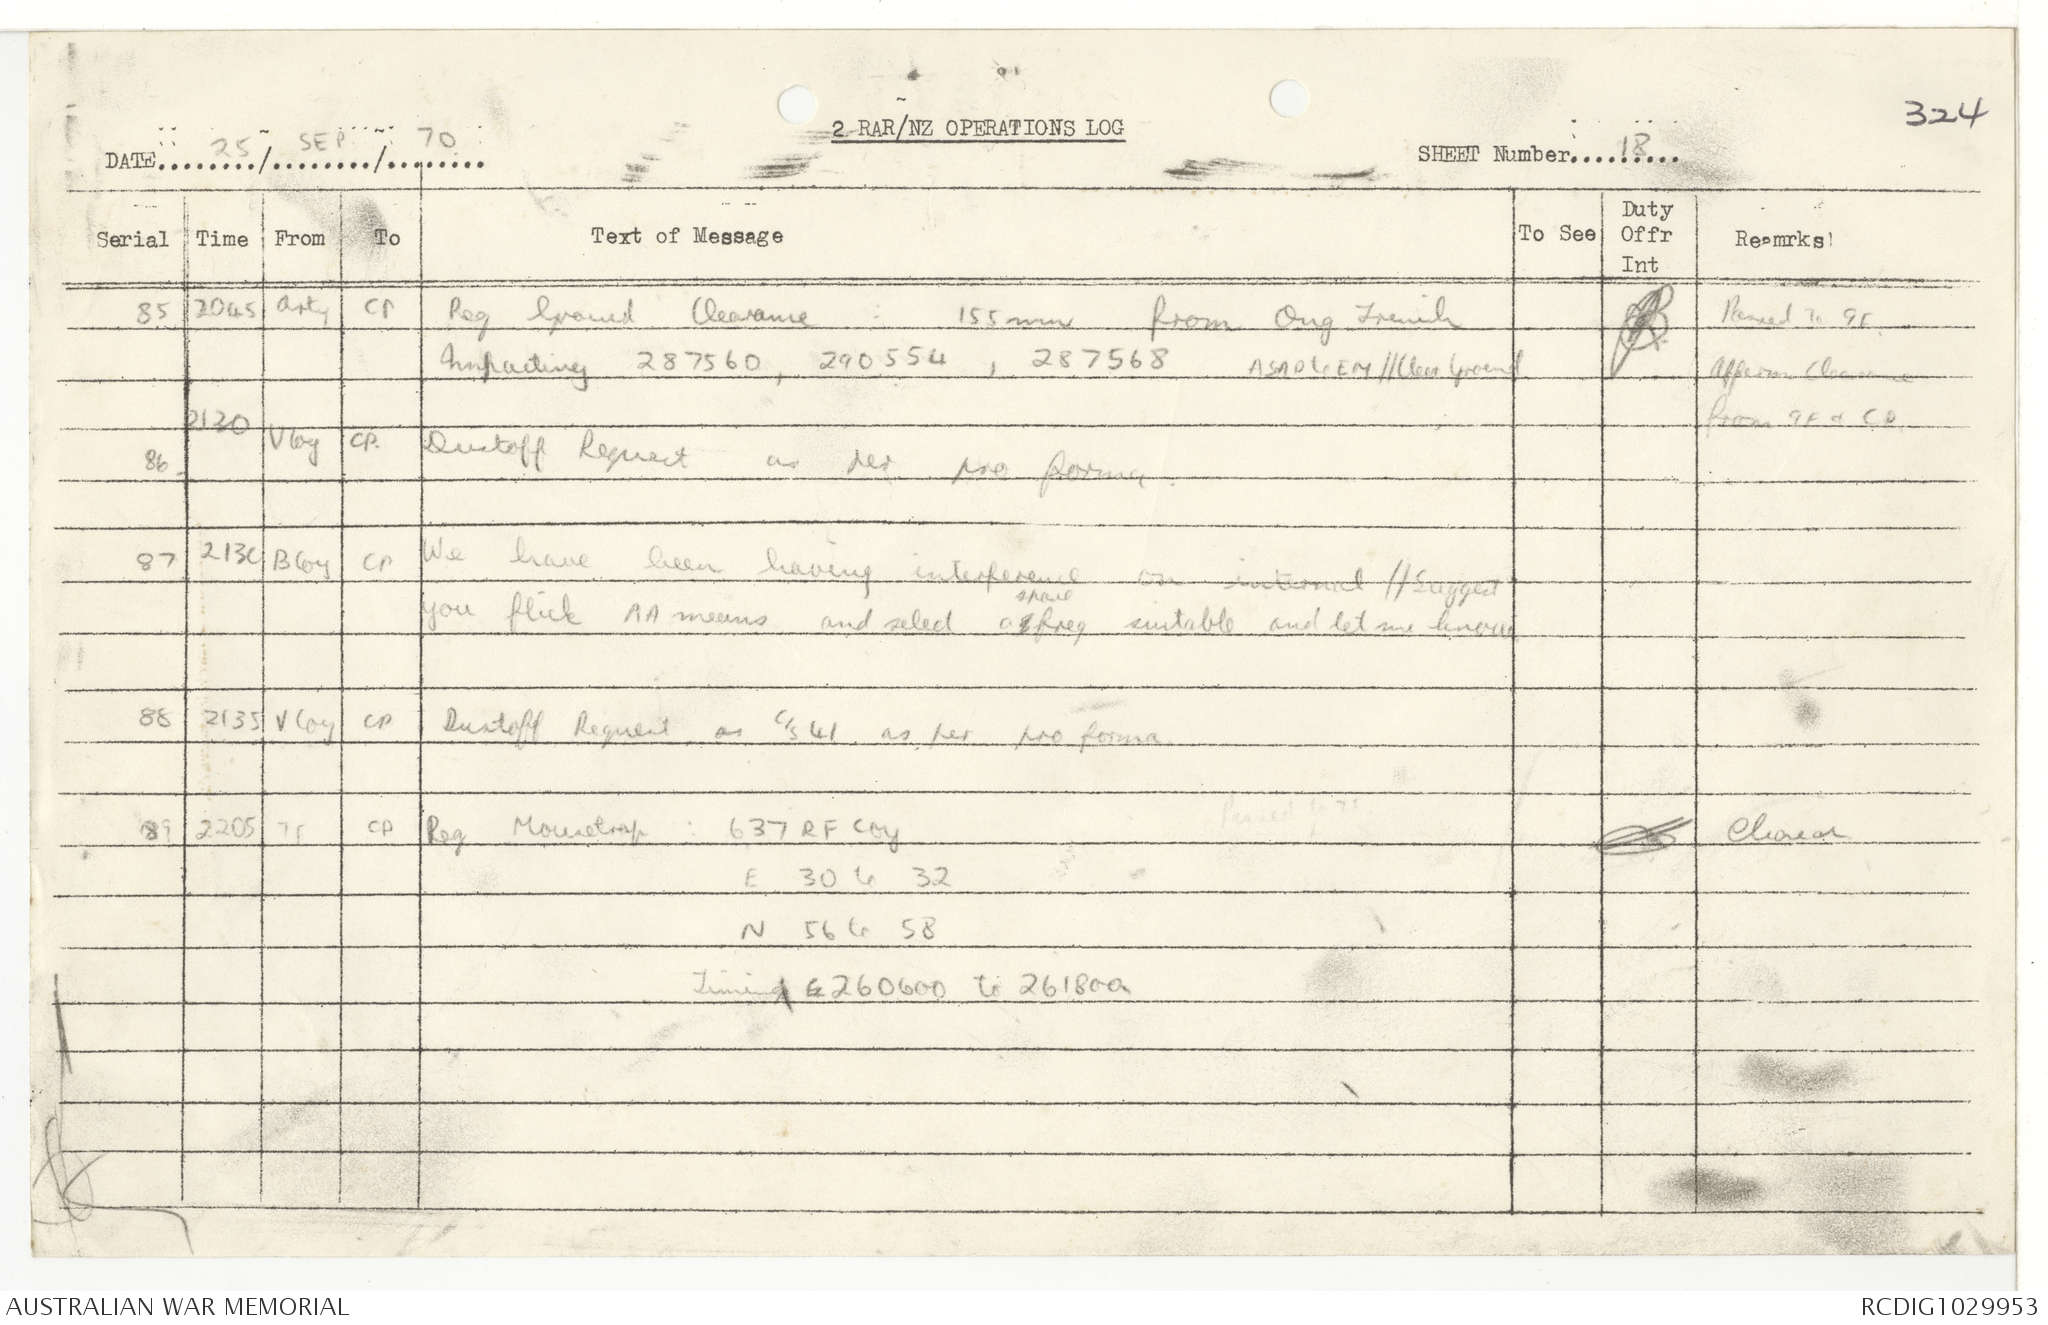 324
2 RAR/NZ OPERATIONS LOG
DATE 25 / SEP / 70
SHEET Number 18
Serial Time From To Text of Message To See Duty Offr Int Reamrks
85 2045 Arty CP Req Ground Clearance : 155mm from Ong Trinh Passed to 9F.
Impacting 287560, 290554, 287568 ASAP to EM // Clear Ground Affirm Clearance
from 9F & CP.
86 2130 V Coy CP. Dustoff Request as per pro forma.
87 2130 B Coy CP We have been having interference on internal // Suggest
you flick AA means and select a spare freq suitable and let me know
88 2135 V Coy CP Dustoff Request as C/S 41 as per pro forma
89 2205 CP Req Mousetrap : 637 RF Coy Clear
E 30 to 32
N 56 to 58
Timing 260600 to 261800
AUSTRALIAN WAR MEMORIAL
RCDIG1029953